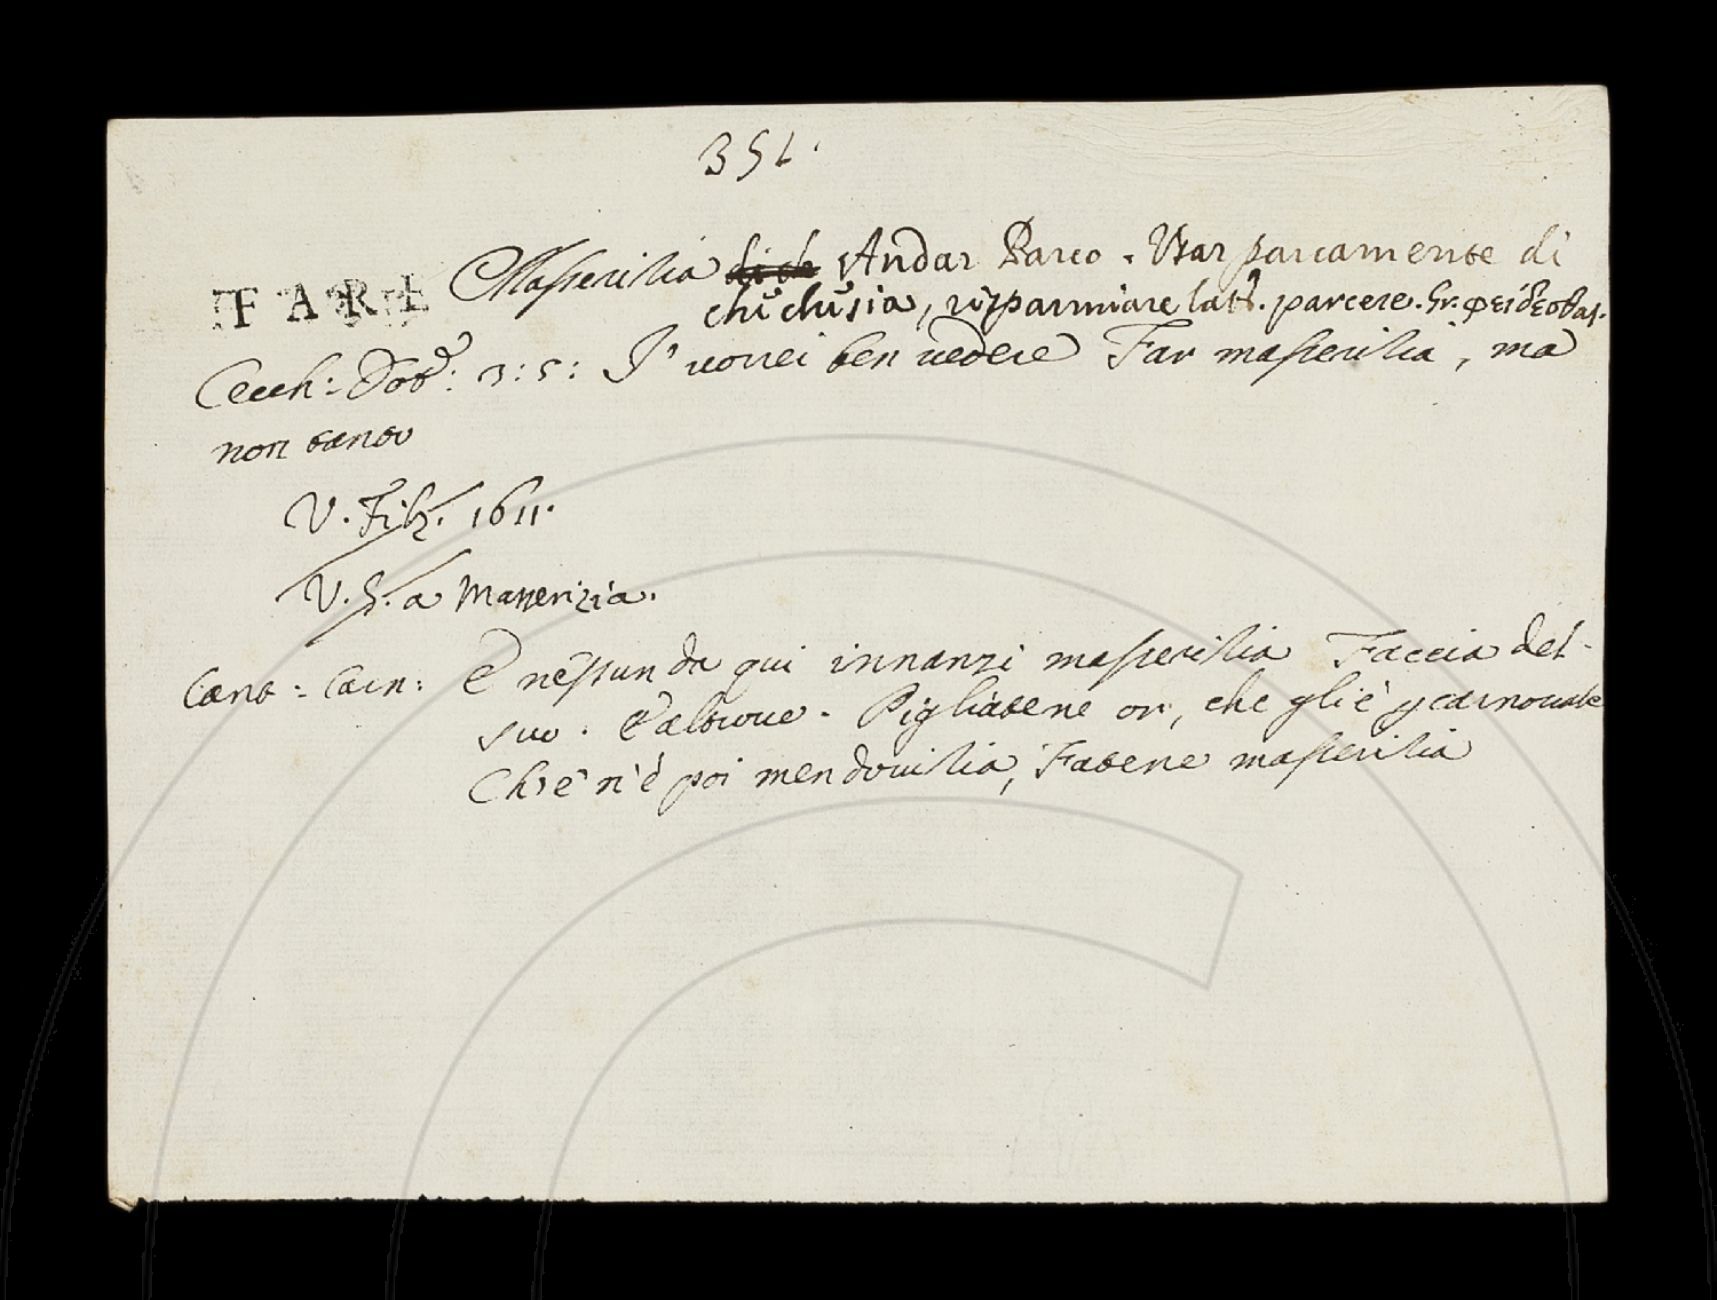 351.
FARE Masserizia di ch Andar Parco. Usar parcamente di
chĕ chĕ sia, risparmiare latt. parcere. Gr. φείδεσθαι.
Cecch: Dot: 3:5: I' vorrei ben vedere Far masserizia, ma
non tanto
V. Filz. 1611.
V. S. a Masserizia.
Cant: Carn: E nessun da qui innanzi masserizia Faccia del
suo. E altrove. Pigliatene or, che gli è ꝑ carnovale
Ch'e' n'è poi men dovizia, Fatene masserizia